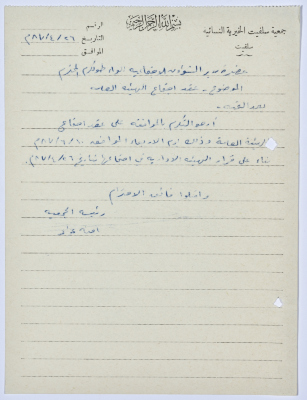 بسم الله الرحمن الرحيم
جمعية سلفيت الخيرية النسائية
سلفيت
الرقم
التاريخ ٨٧/٤/٢٦
الموافق
حضرة مدير الشؤون الاجتماعية لواء طولكرم المحترم
الموضوع - عقد اجتماع الهيئة العامة
بعد التحية،
أرجو التكرم بالموافقة على عقد اجتماع
الهيئة العامة وذلك يوم الاربعاء الواقع
بناء على قرار الهيئة الادارية في اجتماعها بتاريخ
واقبلوا فائق الاحترام
رئيسة الجمعية